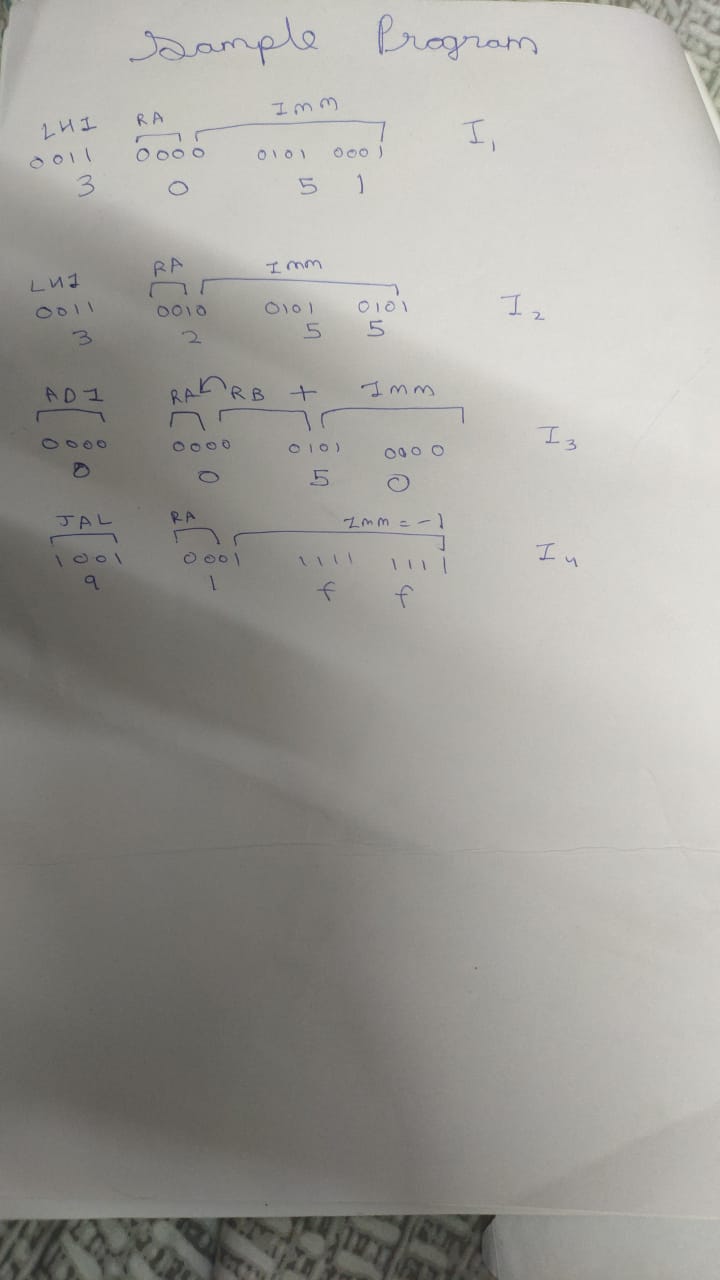 Sample Program
LHI RA Imm
0011 0000 0101 0001 I1
3 0 5 1
LHI RA Imm
0011 0010 0101 0101 I2
3 2 5 5
ADI RA RB + Imm
0000 0000 0101 0000 I3
0 0 5 0
JAL RA Imm = -1
1001 0001 1111 1111 I4
9 1 f f